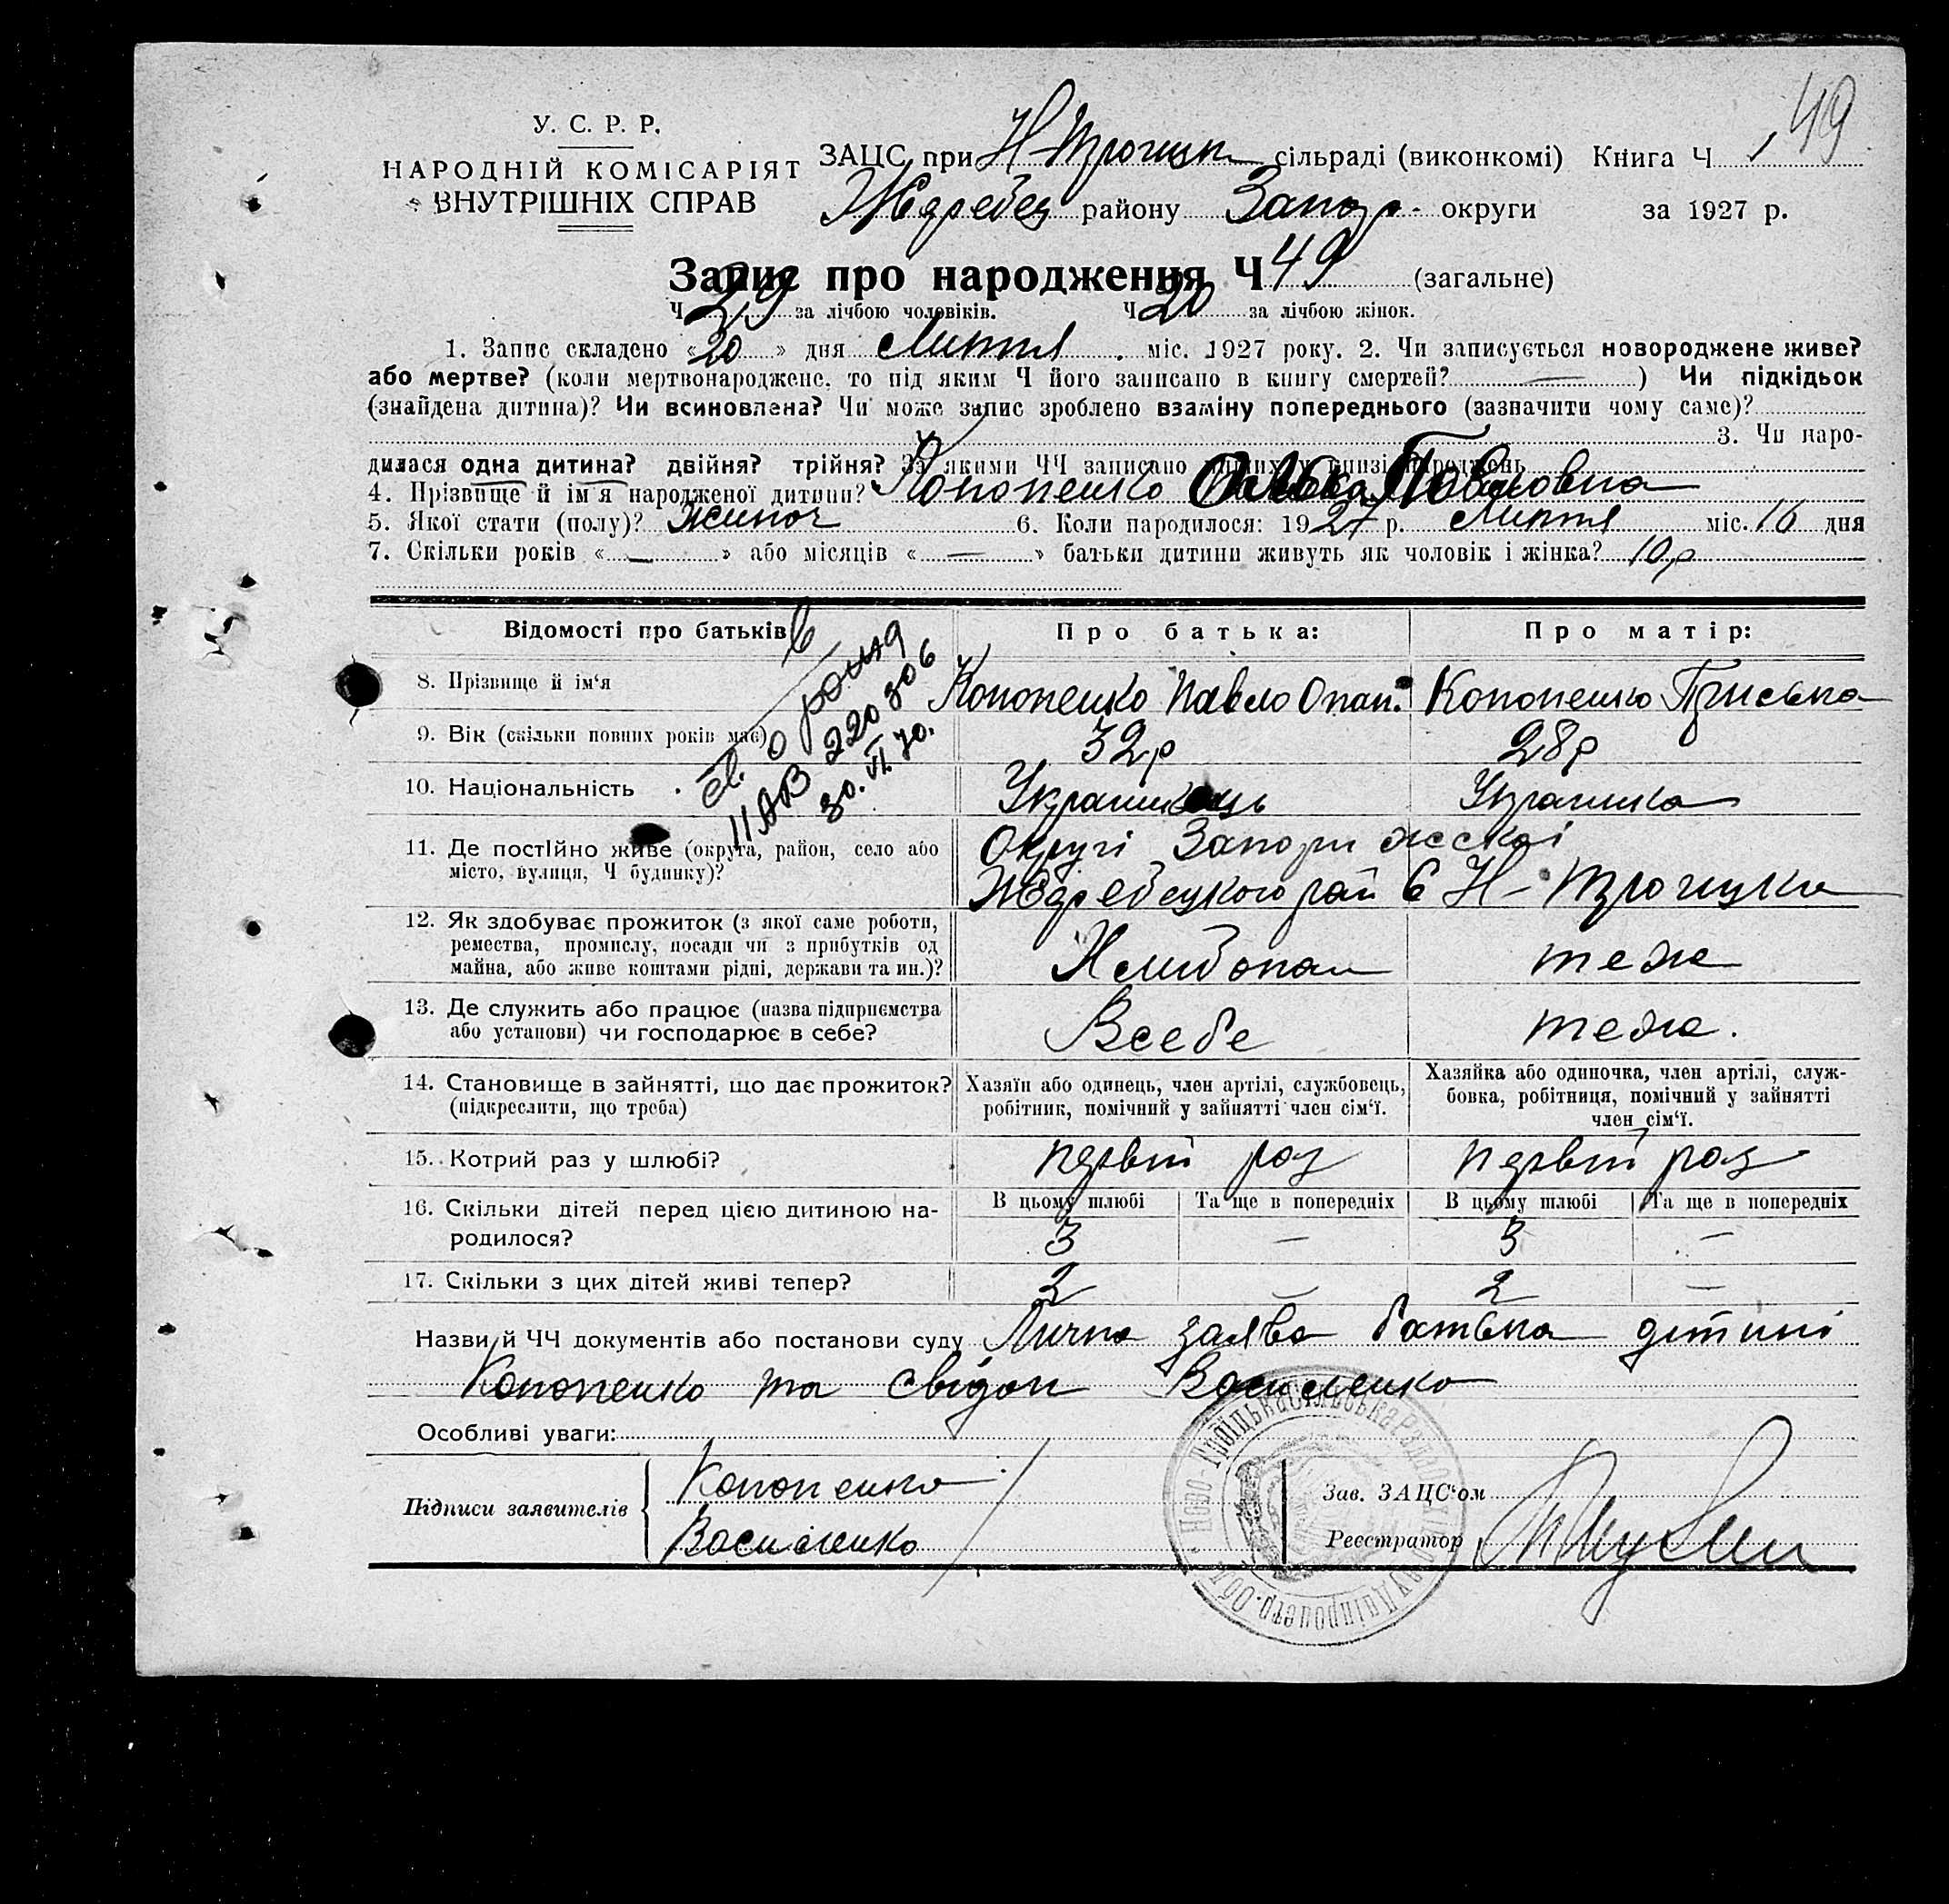 49
У. С. Р. Р.
НАРОДНІЙ КОМІСАРІЯТ
ВНУТРІШНІХ СПРАВ
ЗАЦС при Н-Троицк сільраді (виконкомі) Книга Ч 1
Жеребец району Запор- округи за 1927 р.
Запис про народження Ч 49 (загальне)
Ч 29 за лічбою чоловіків. Ч 20 за лічбою жінок.
1. Запис складено «20» дня Липня міс. 1927 року. 2. Чи записується новороджене живе?
або мертве? (коли мертвонароджене, то під яким Ч його записано в книгу смертей? —) Чи підкідьок
(знайдена дитина)? Чи всиновлена? Чи може запис зроблено взаміну попереднього (зазначити чому саме)?
3. Чи наро-
дилася одна дитина? двійня? трійня? За якими ЧЧ записано інших у книзі народжень
4. Прізвище й ім'я народженої дитини? Кононенко Ольга Павловна
5. Якої статі (полу)? Жиноч 6. Коли народилося: 1927 р. Липня міс. 16 дня
7. Скільки років «—» або місяців «—» батьки дитини живуть як чоловік і жінка? 10р
Відомості про батьків Про батька: Про матір:
8. Прізвище й ім'я Кононенко Павло Опан. Кононенко Приська
9. Вік (скільки повних років має) 32р 28р
10. Національність Украинець Украинка
св. о рожд
ІІ АВ 220306
30.VI.70.
11. Де постійно живе (округа, район, село або
місто, вулиця, Ч будинку)?
Округі Запорижскоі
Жеребецкого рай С Н-Троицки
12. Як здобуває прожиток (з якої саме роботи,
ремества, промислу, посади чи з прибутків од
майна, або живе коштами рідні, держави та ин.)?
Хлибопаш теж
13. Де служить або працює (назва підприємства
або установи) чи господарює в себе?
Всебе теж.
14. Становище в зайнятті, що дає прожиток?
(підкреслити, що треба)
Хазяїн або одинець, член артілі, службовець,
робітник, помічний у зайнятті член сім'ї.
Хазяйка або одиночка, член артілі, служ-
бовка, робітниця, помічний у зайнятті
член сім'ї.
15. Котрий раз у шлюбі? первий раз первий раз
16. Скільки дітей перед цією дитиною на-
родилося?
В цьому шлюбі Та ще в попередніх В цьому шлюбі Та ще в попередніх
3 — 3 —
17. Скільки з цих дітей живі тепер? 2 — 2 —
Назви й ЧЧ документів або постанови суду Лична заява батька дитини
Кононенко та свідок Василенко
Особливі уваги:
Підписи заявителів
Кононенко
Василенко
Зав. ЗАЦС'ом
Реєстратор
Ново-Троїцька Сільська Рада